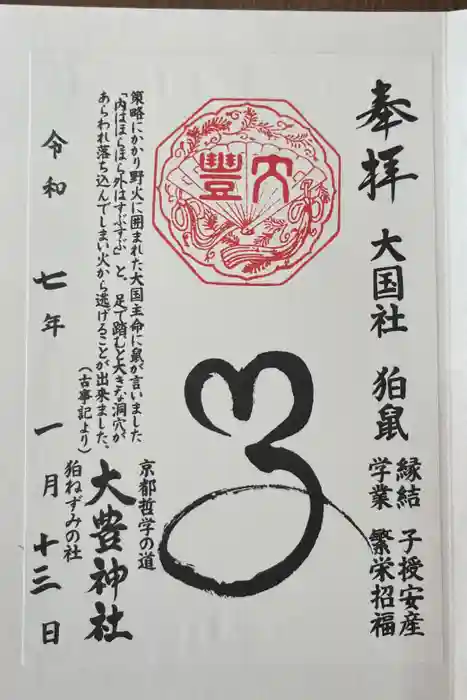 奉拝
大国社 狛鼠
縁結 子授安産
学業 繁栄招福
大豊
策略にかかり野火に囲まれた大国主命に鼠が言いました
「内はほらほら外はすぶすぶ」と。足で踏むと大きな洞穴が
あらわれ落ち込んでしまい火から逃げることが出来ました。
(古事記より)
京都哲学の道
大豊神社
狛ねずみの社
令和 七年 一月 十三日